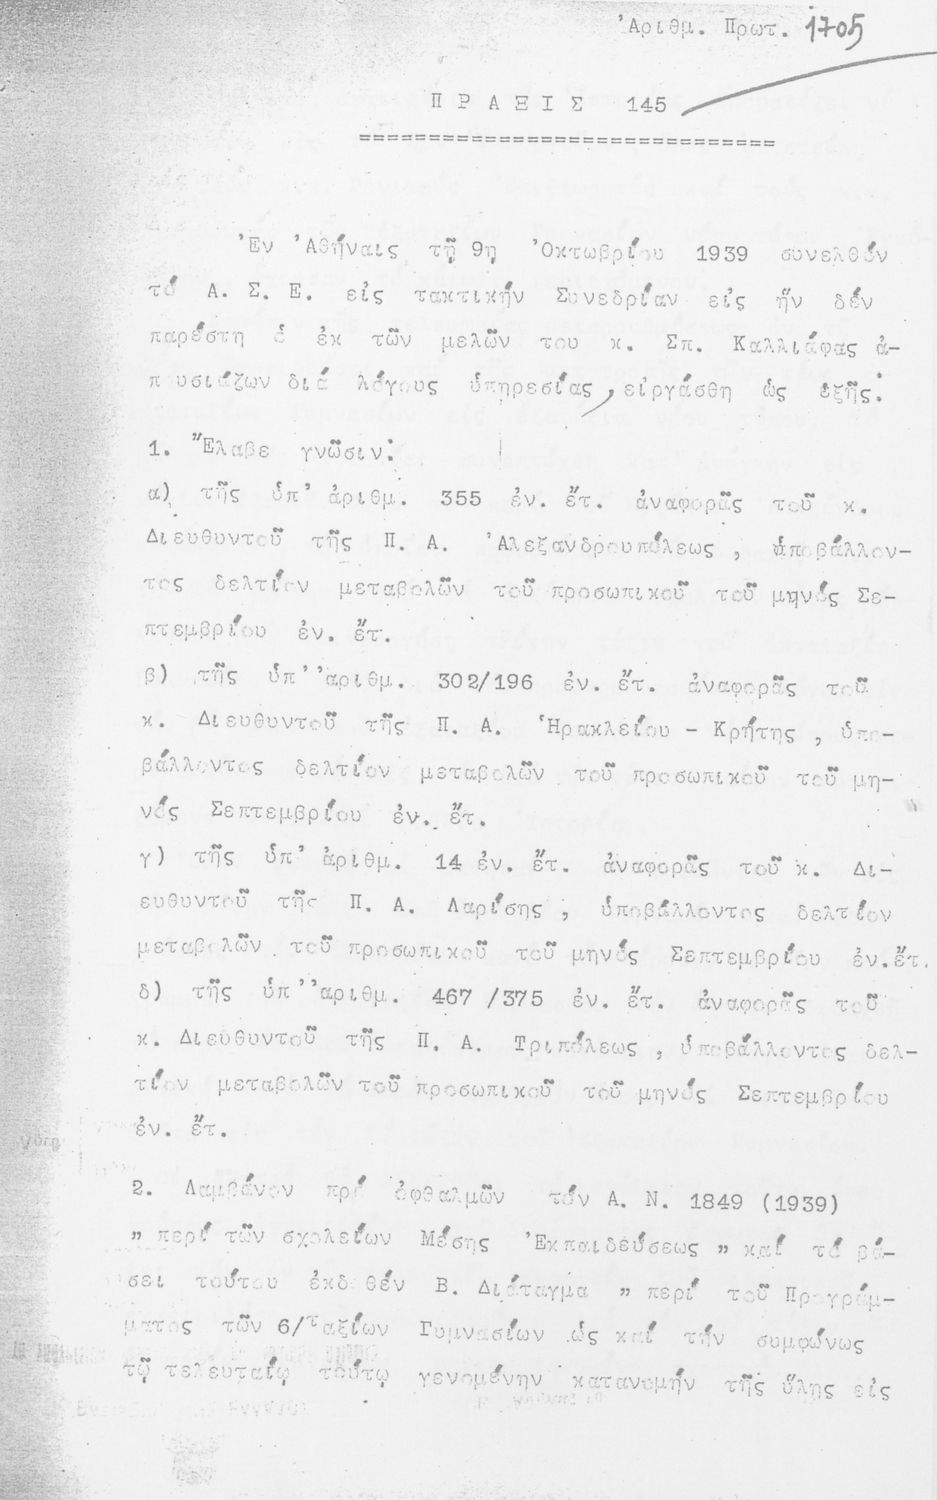 Ἀριθμ. Πρωτ. 1705
ΠΡΑΞΙΣ 145
==============================
Ἐν Ἀθήναις τῇ 9η Ὀκτωβρίου 1939 συνελθόν
τό Α. Σ. Ε. εἰς τακτικήν Συνεδρίαν εἰς ἥν δέν
παρέστη ὁ ἐκ τῶν μελῶν του κ. Σπ. Καλλιάφας ἀ-
πουσιάζων διά λόγους ὑπηρεσίας, εἰργάσθη ὡς ἑξῆς:
1. Ἔλαβε γνῶσιν:
α) τῆς ὑπ' ἀριθμ. 355 ἐν. ἔτ. ἀναφορᾶς τοῦ κ.
Διευθυντοῦ τῆς Π. Α. Ἀλεξανδρουπόλεως, ὑποβάλλον-
τος δελτίον μεταβολῶν τοῦ προσωπικοῦ τοῦ μηνός Σε-
πτεμβρίου ἐν. ἔτ.
β) τῆς ὑπ' ἀριθμ. 302/196 ἐν. ἔτ. ἀναφορᾶς τοῦ
κ. Διευθυντοῦ τῆς Π. Α. Ἡρακλείου - Κρήτης, ὑπο-
βάλλοντος δελτίον μεταβολῶν τοῦ προσωπικοῦ τοῦ μη-
νός Σεπτεμβρίου ἐν. ἔτ.
γ) τῆς ὑπ' ἀριθμ. 14 ἐν. ἔτ. ἀναφορᾶς τοῦ κ. Δι-
ευθυντοῦ τῆς Π. Α. Λαρίσης, ὑποβάλλοντος δελτίον
μεταβολῶν τοῦ προσωπικοῦ τοῦ μηνός Σεπτεμβρίου ἐν.ἔτ.
δ) τῆς ὑπ' ἀριθμ. 467 /375 ἐν. ἔτ. ἀναφορᾶς τοῦ
κ. Διευθυντοῦ τῆς Π. Α. Τριπόλεως, ὑποβάλλοντος δελ-
τίον μεταβολῶν τοῦ προσωπικοῦ τοῦ μηνός Σεπτεμβρίου
ἐν. ἔτ.
2. Λαμβάνον πρό ὀφθαλμῶν τόν Α. Ν. 1849 (1939)
" περί τῶν σχολείων Μέσης Ἐκπαιδεύσεως " καί τό βά-
σει τούτου ἐκδοθέν Β. Διάταγμα " περί τοῦ Προγράμ-
ματος τῶν 6/ταξίων Γυμνασίων ὡς καί τήν συμφώνως
τῷ τελευταίῳ τούτῳ γενομένην κατανομήν τῆς ὕλης εἰς